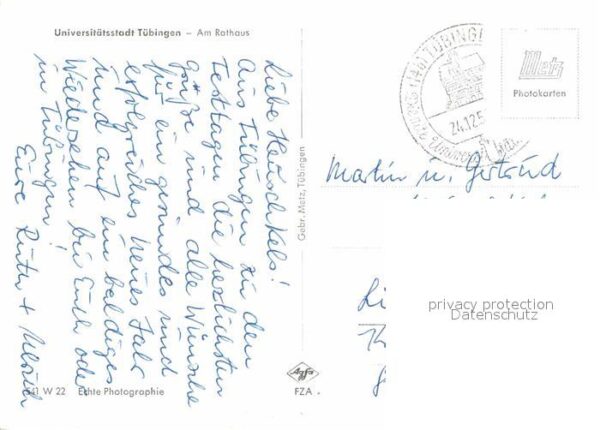 Universitätsstadt Tübingen – Am Rathaus
Liebe
Aus Tübingen zu den
Festtagen die herzlichsten
Grüße und alle Wünsche
für ein gesundes und
erfolgreiches Neues Jahr
und auf ein baldiges
Wiedersehen bei Euch oder
in Tübingen!
Eure Ruth + Ulrich
541 W 22 Echte Photographie
Gebr. Metz, Tübingen
Agfa
FZA
TÜBINGEN
24.12.5
Metz
Photokarten
Martin u. Gertrud
privacy protection
Datenschutz